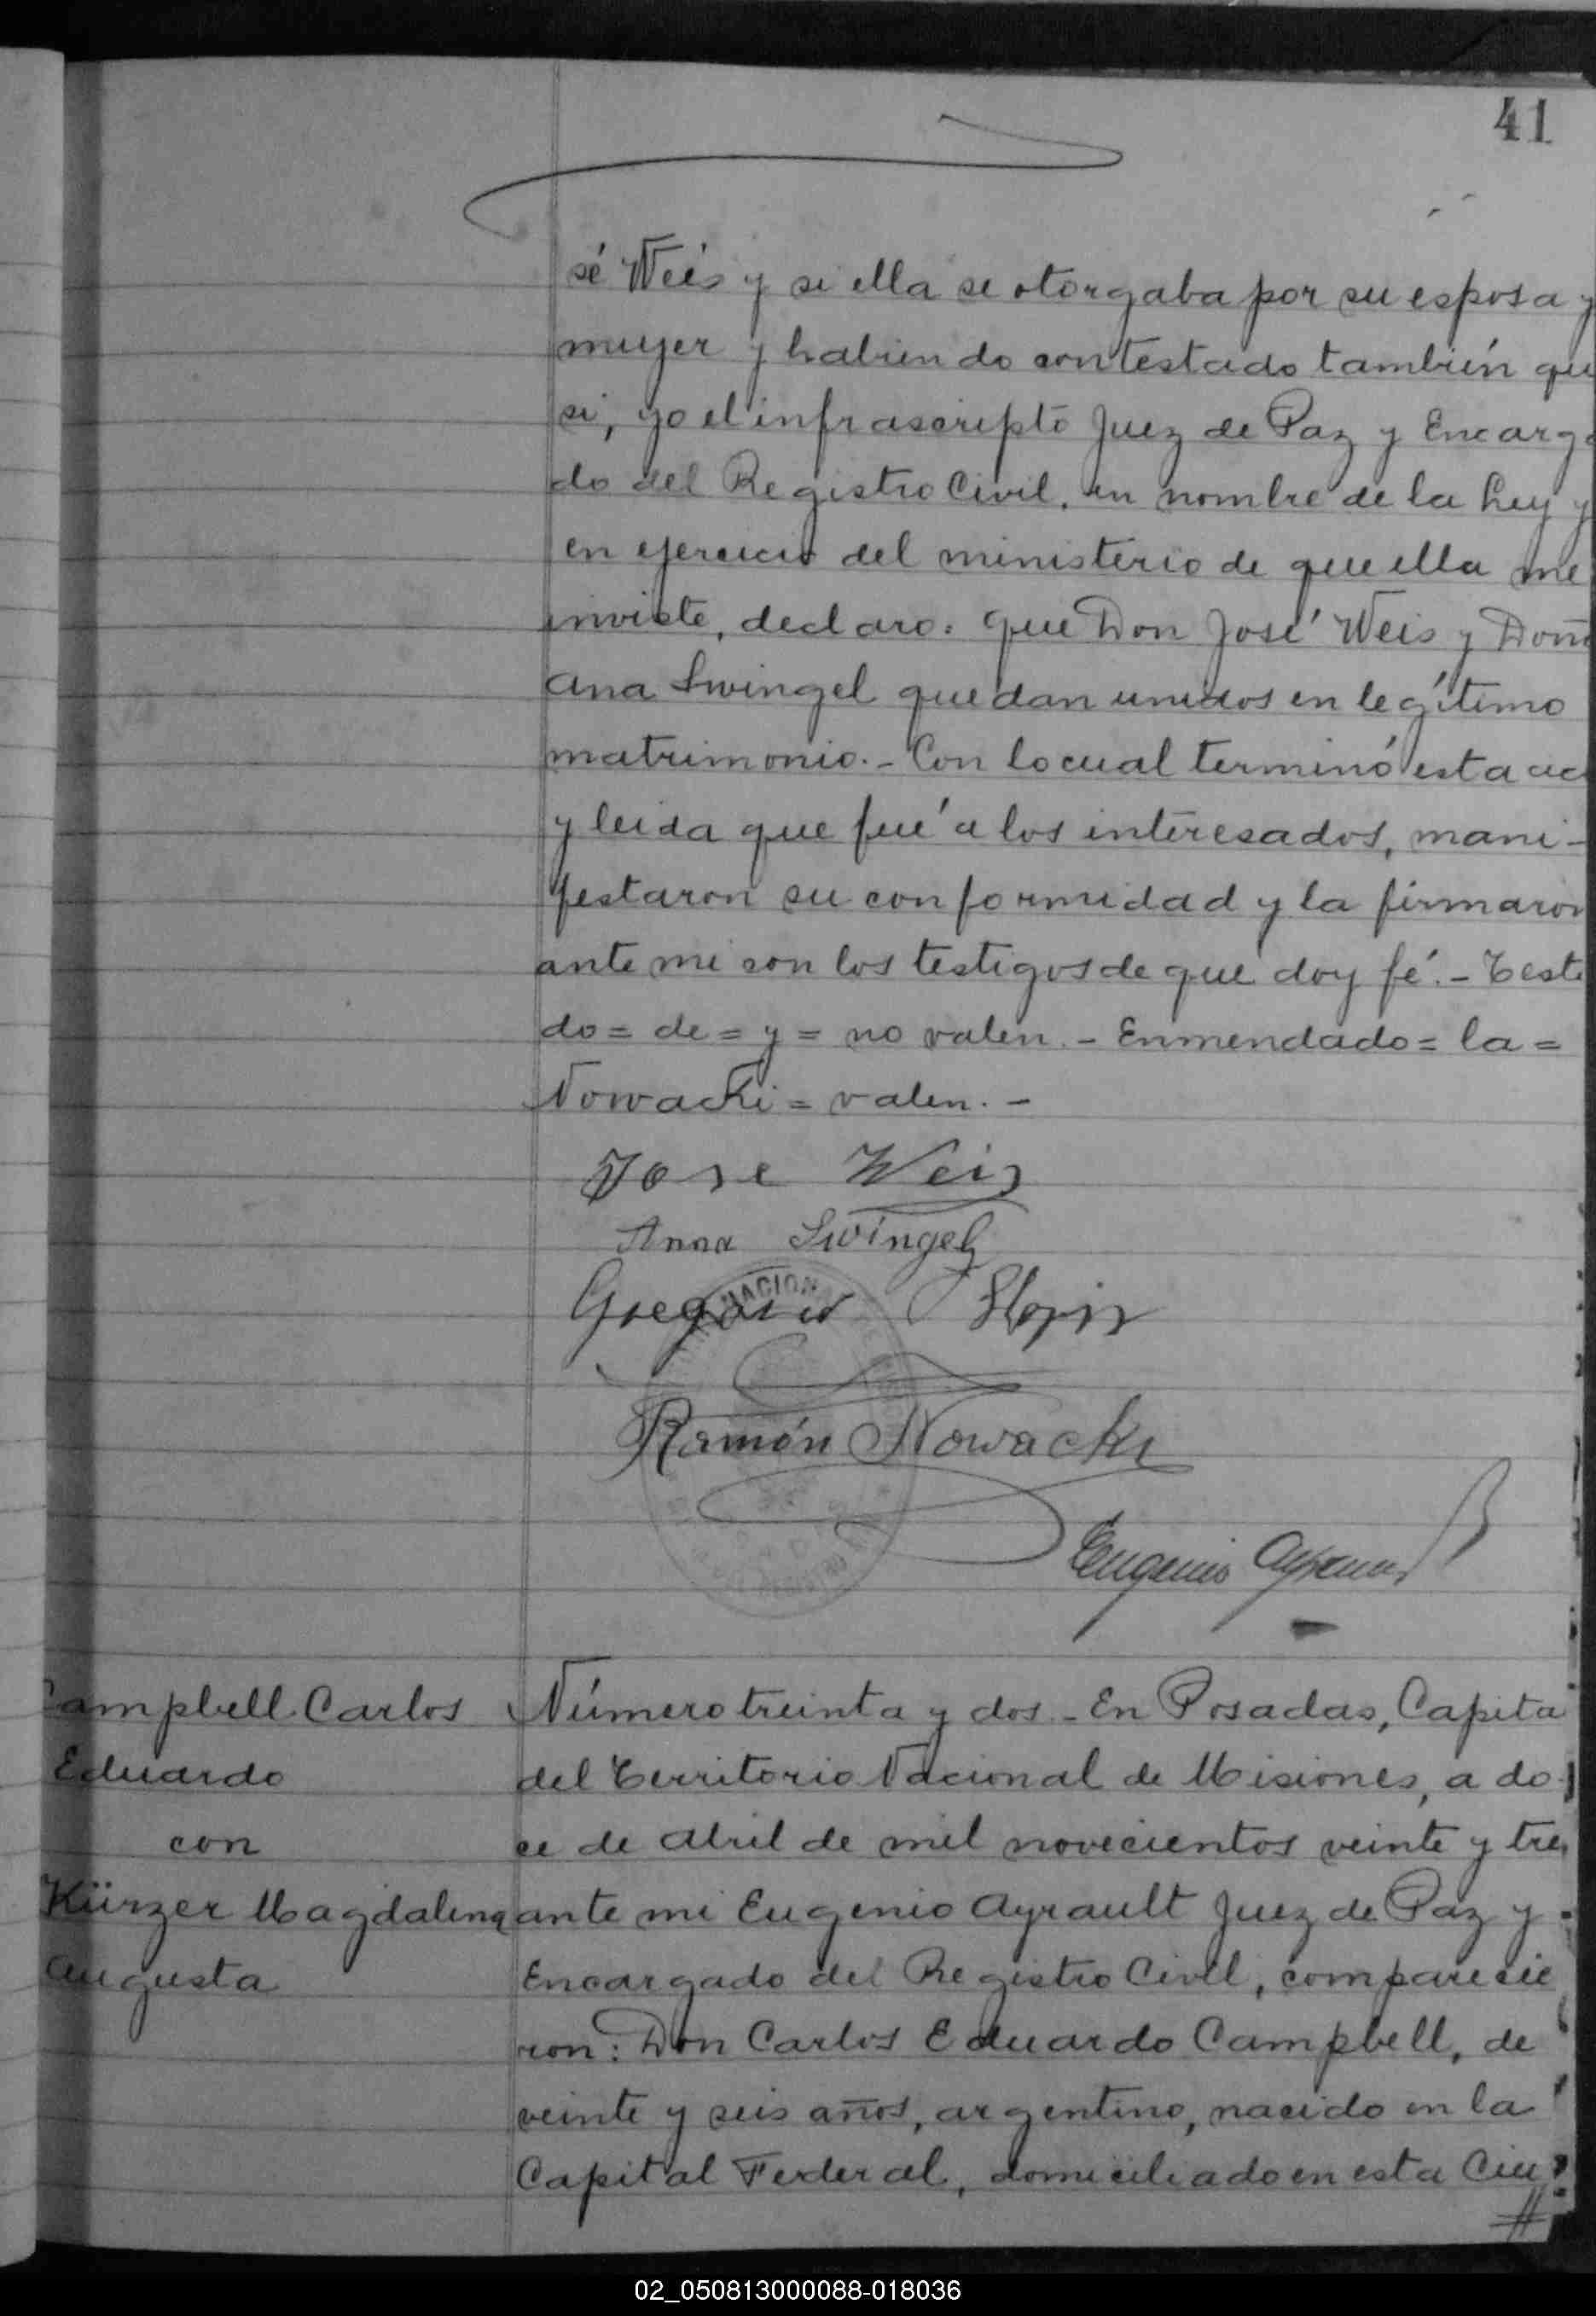 41
sé Weis y si ella se otorgaba por su esposa y
mujer y habiendo contestado también que
si, yo el infrascripto Juez de Paz y Encarga
do del Registro Civil, en nombre de la Ley y
en ejercicio del ministerio de que ella me
inviste, declaro: que Don José Weis y Doña
Ana Swingel quedan unidos en legítimo
matrimonio.- Con lo cual terminó esta ac
y leida que fué a los interesados, mani-
festaron su conformidad y la firmaron
ante mi con los testigos de que doy fé.- Testa
do = de = y = no valen.- Enmendado = la =
Nowacki = valen.-
Jose Weis
Anna Swingel
Gregorio
NACIONAL
Ramón Nowacki
Eugenio Ayrault
Campbell Carlos
Eduardo
con
Kürzer Magdalena
Augusta
Número treinta y dos.- En Posadas, Capital
del Territorio Nacional de Misiones, a do
ce de Abril de mil novecientos veinte y tres
ante mi Eugenio Ayrault Juez de Paz y
Encargado del Registro Civil, comparecie
ron: Don Carlos Eduardo Campbell, de
veinte y seis años, argentino, nacido en la
Capital Federal, domiciliado en esta Ciu
02_050813000088-018036